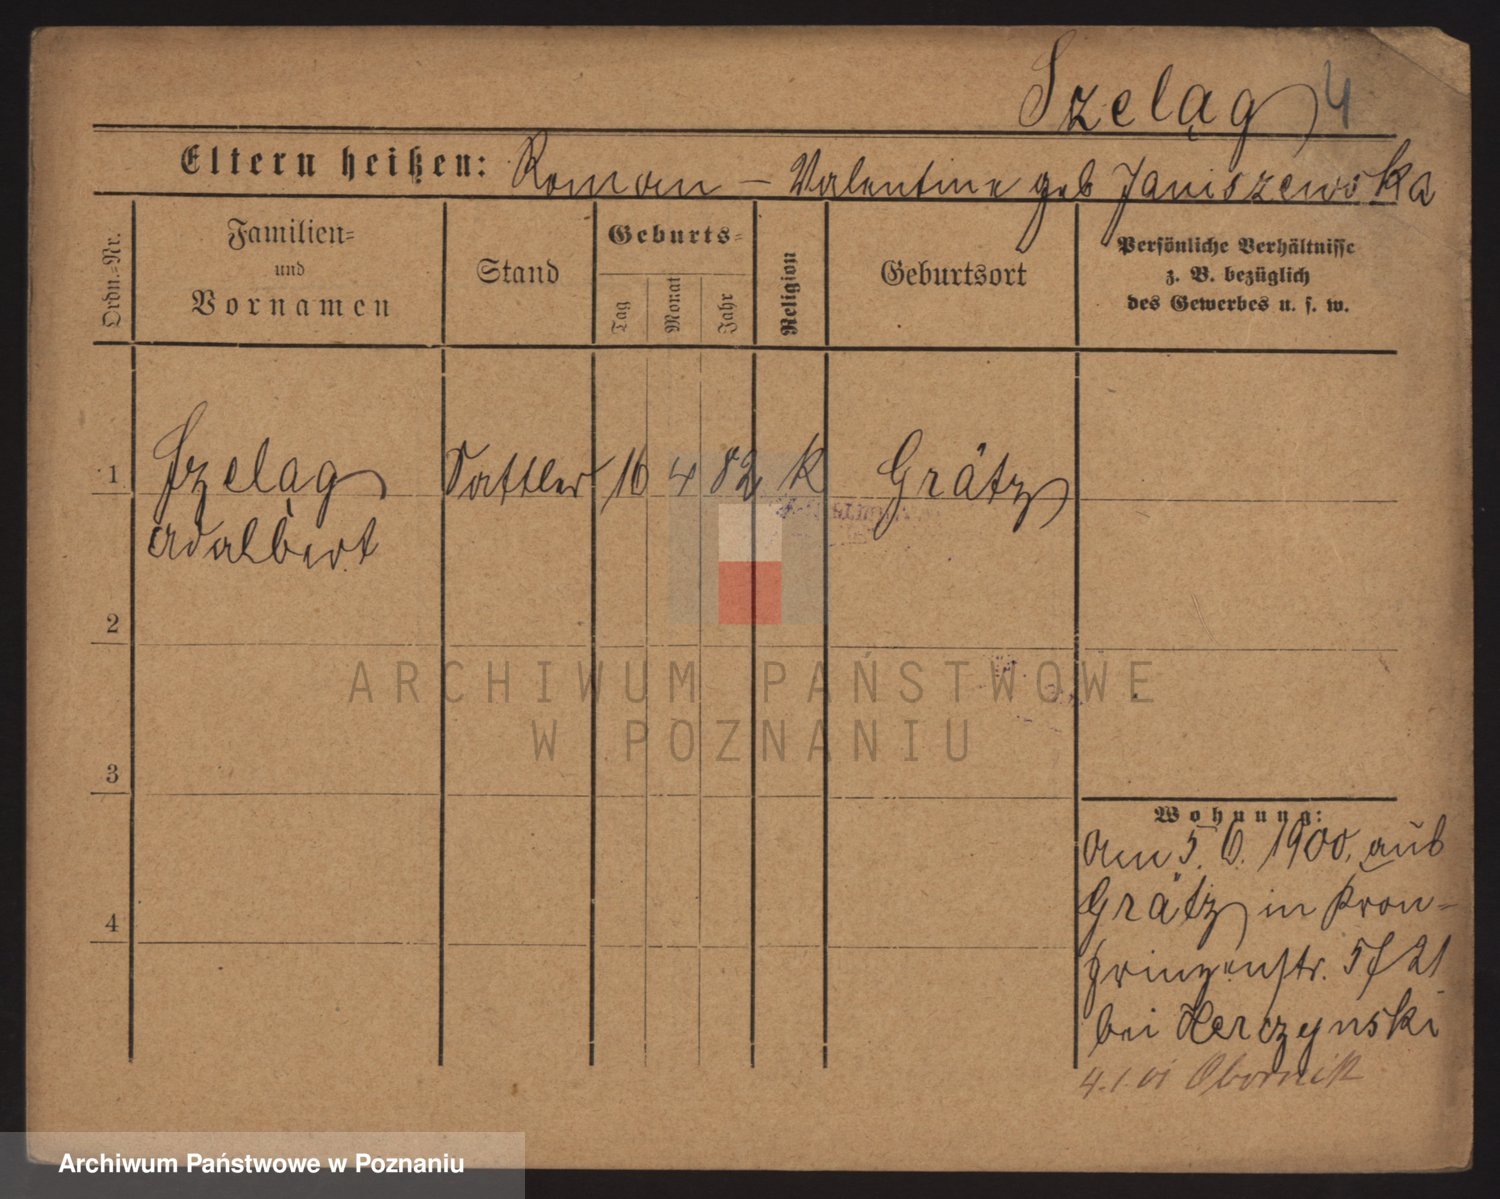 Szeląg 4
Eltern heißen: Roman – Valentine geb Janiszewska
Ordn.-Nr.
Familien-
und
Vornamen
Stand
Geburts-
Tag
Monat
Jahr
Religion
Geburtsort
Persönliche Verhältnisse
z. B. bezüglich
des Gewerbes u. s. w.
1 Szeląg Sattler 16 4 82 k Grätz
Adalbert
2
3
4
Wohnung:
am 5. 6. 1900. aus
Grätz in Kron-
prinzenstr. 57 21
bei Herczynski
4.1.01 Obornik
ARCHIWUM PAŃSTWOWE
W POZNANIU
Archiwum Państwowe w Poznaniu